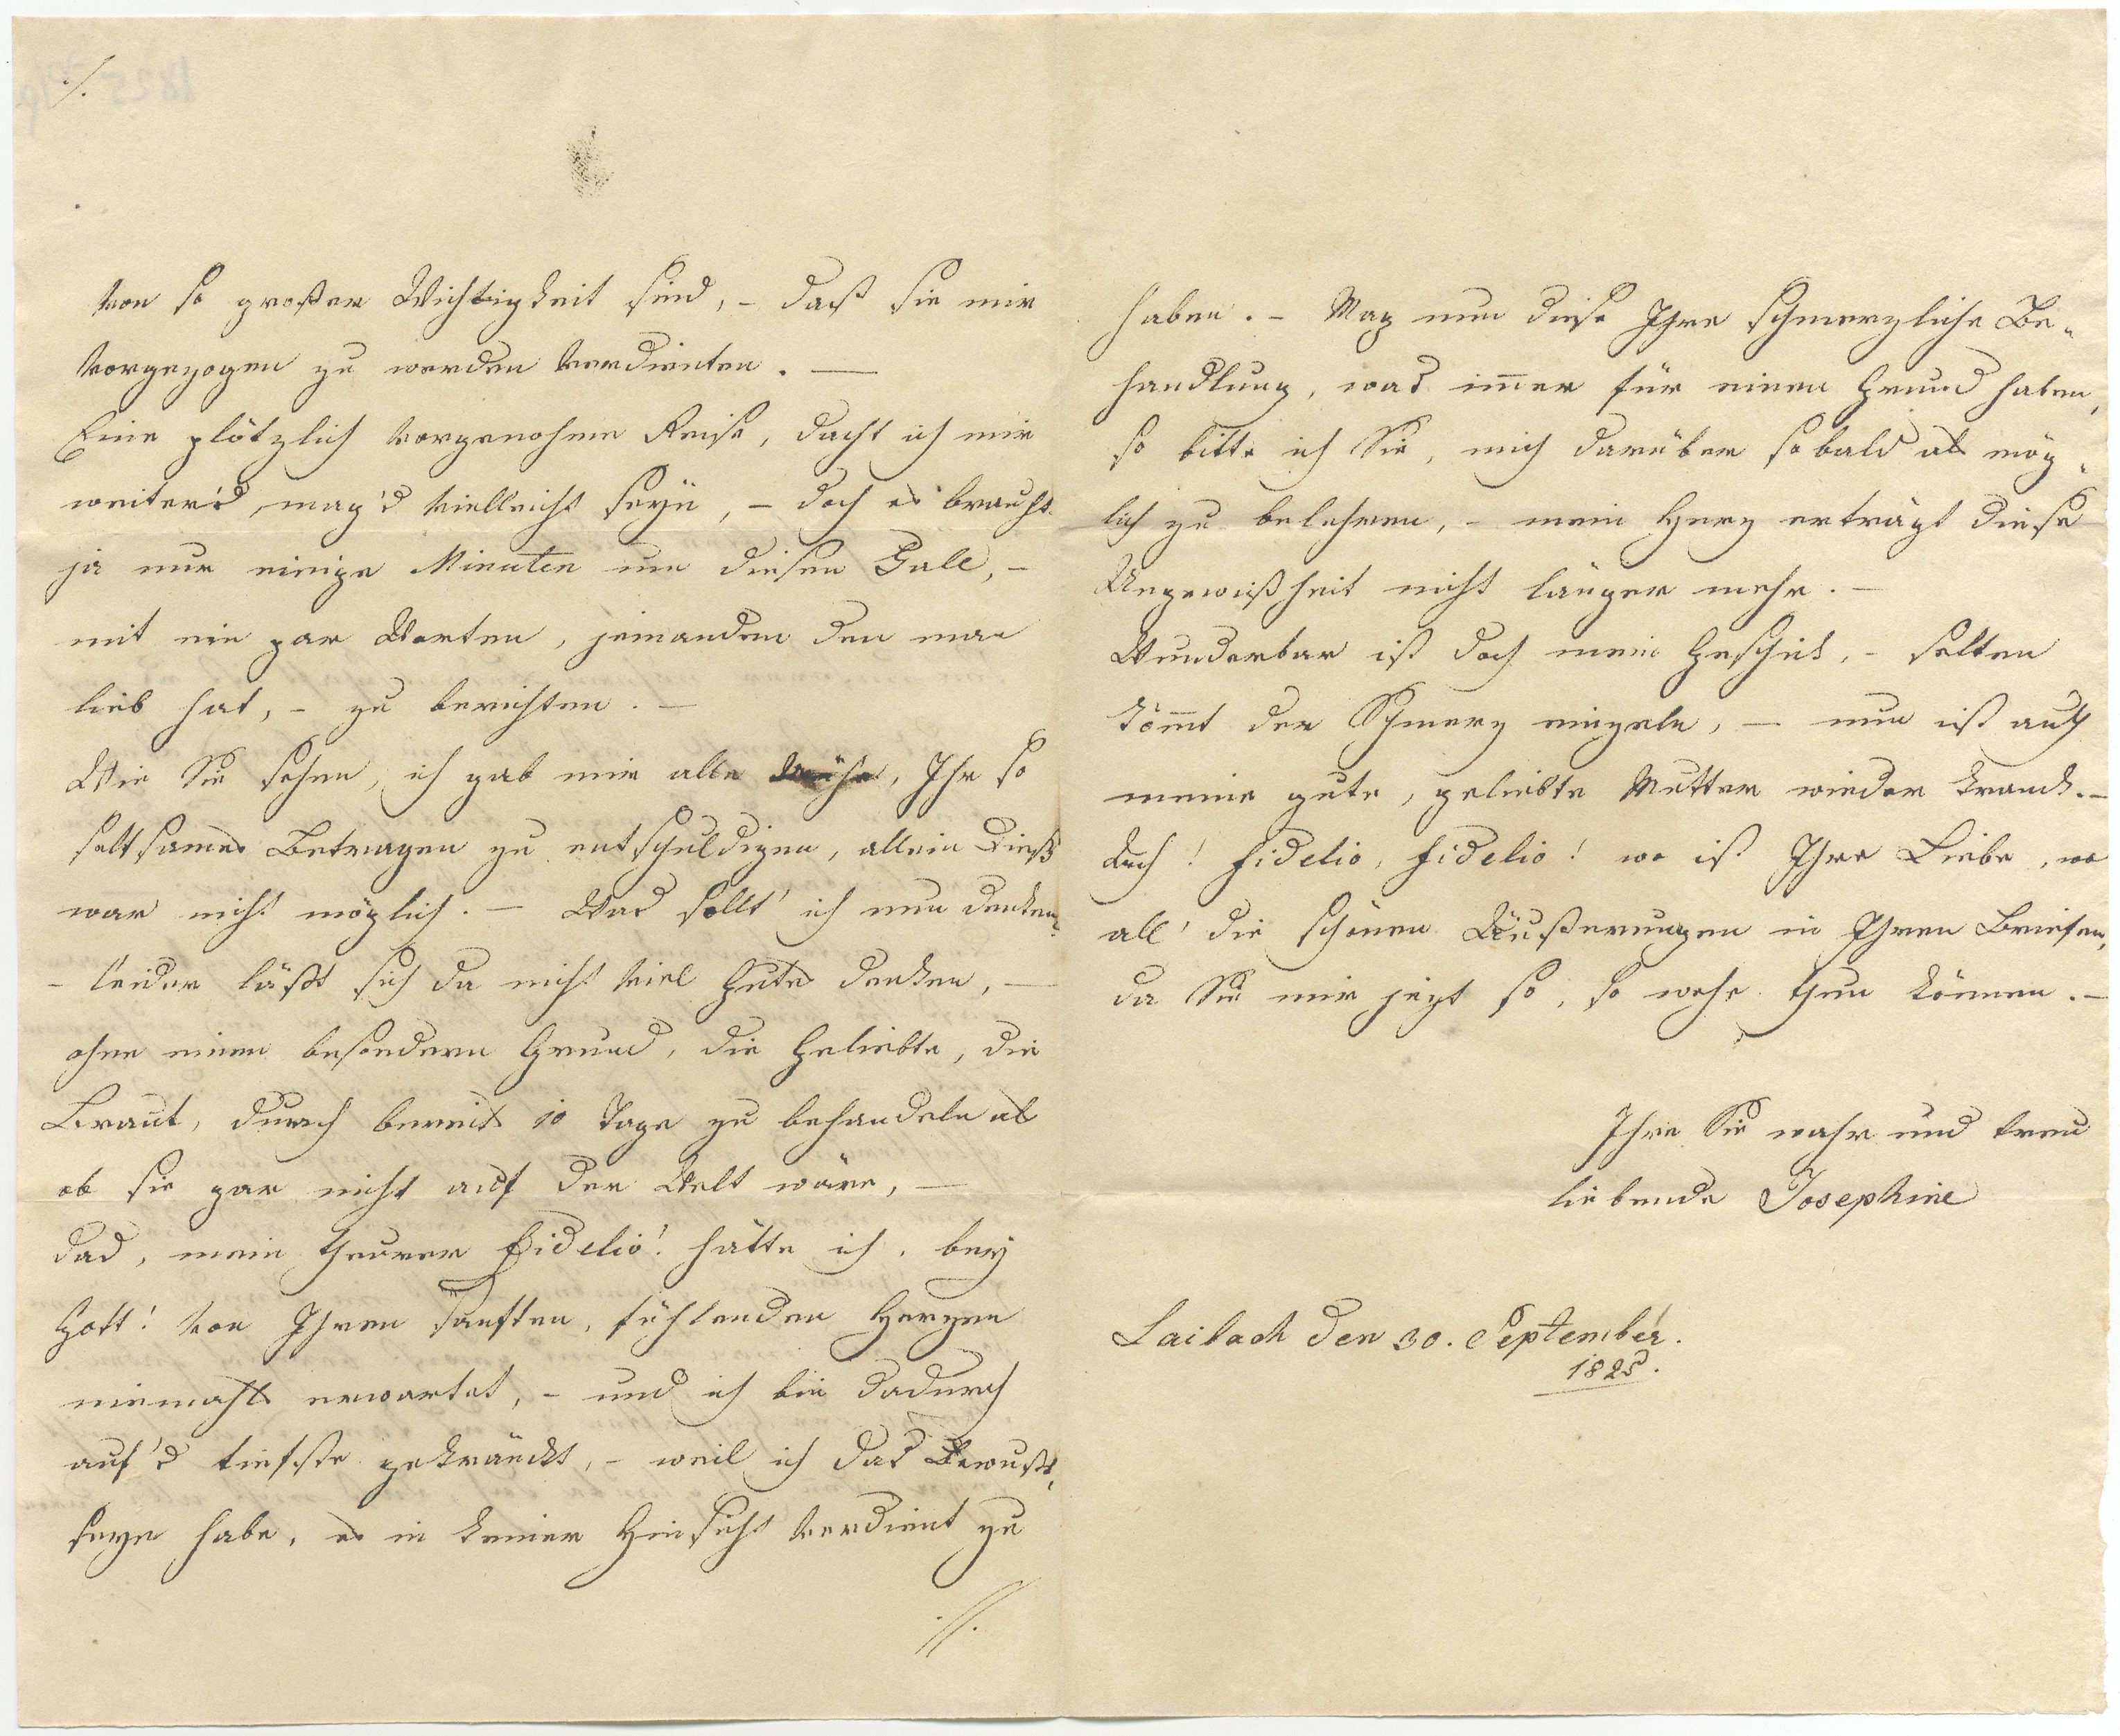 ./.
von so großer Wichtigkeit sind, – daß sie mir
vorgezogen zu werden verdienten. —
Eine plötzlich vorgenohmene Reise, dacht ich mir
weiter's, mag's vielleicht seyn, – doch es braucht
ja nur einige Minuten um diesen Fall, –
mit ein par Worten, jemanden den man
lieb hat, – zu berichten. –
Wie Sie sehen, ich gab mir alle Mühe, Ihr so
seltsames Betragen zu entschuldigen, allein dieß
war nicht möglich. – Was sollt' ich nun denken?
– leider läßt sich da nicht viel Gutes denken, —
ohne einen besondern Grund, die Geliebte, die
Braut, durch bereits 10 Tage zu behandeln als
ob sie gar nicht auf der Welt wäre, —
das, mein theurer Fidelio! hätte ich, bey
Gott! von Ihren sanften, fühlenden Herzen
niemahls erwartet, – und ich bin dadurch
auf's tiefste gekränckt, – weil ich das Bewußt¸
seyn habe, es in keiner Hinsicht verdient zu
.//.
haben. – Mag nun diese Ihre schmerzliche Be„
handlung, was im̅er für einen Grund haben,
so bitte ich Sie, mich darüber so bald als mög„
lich zu belehren, – mein Herz erträgt diese
Ungewißheit nicht länger mehr. –
Wunderbar ist doch mein Geschick, – selten
köm̅t der Schmerz einzeln, – nun ist auch
meine gute, geliebte Mutter wieder kranck. –
Ach! Fidelio, Fidelio! wo ist Ihre Liebe, wo
all' die schönen Äußerungen in Ihren Briefen,
da Sie mir jezt so, so wehe thun können. –
Ihre Sie wahr und treu
liebende Josephine
Laibach den 30. September.
1825.